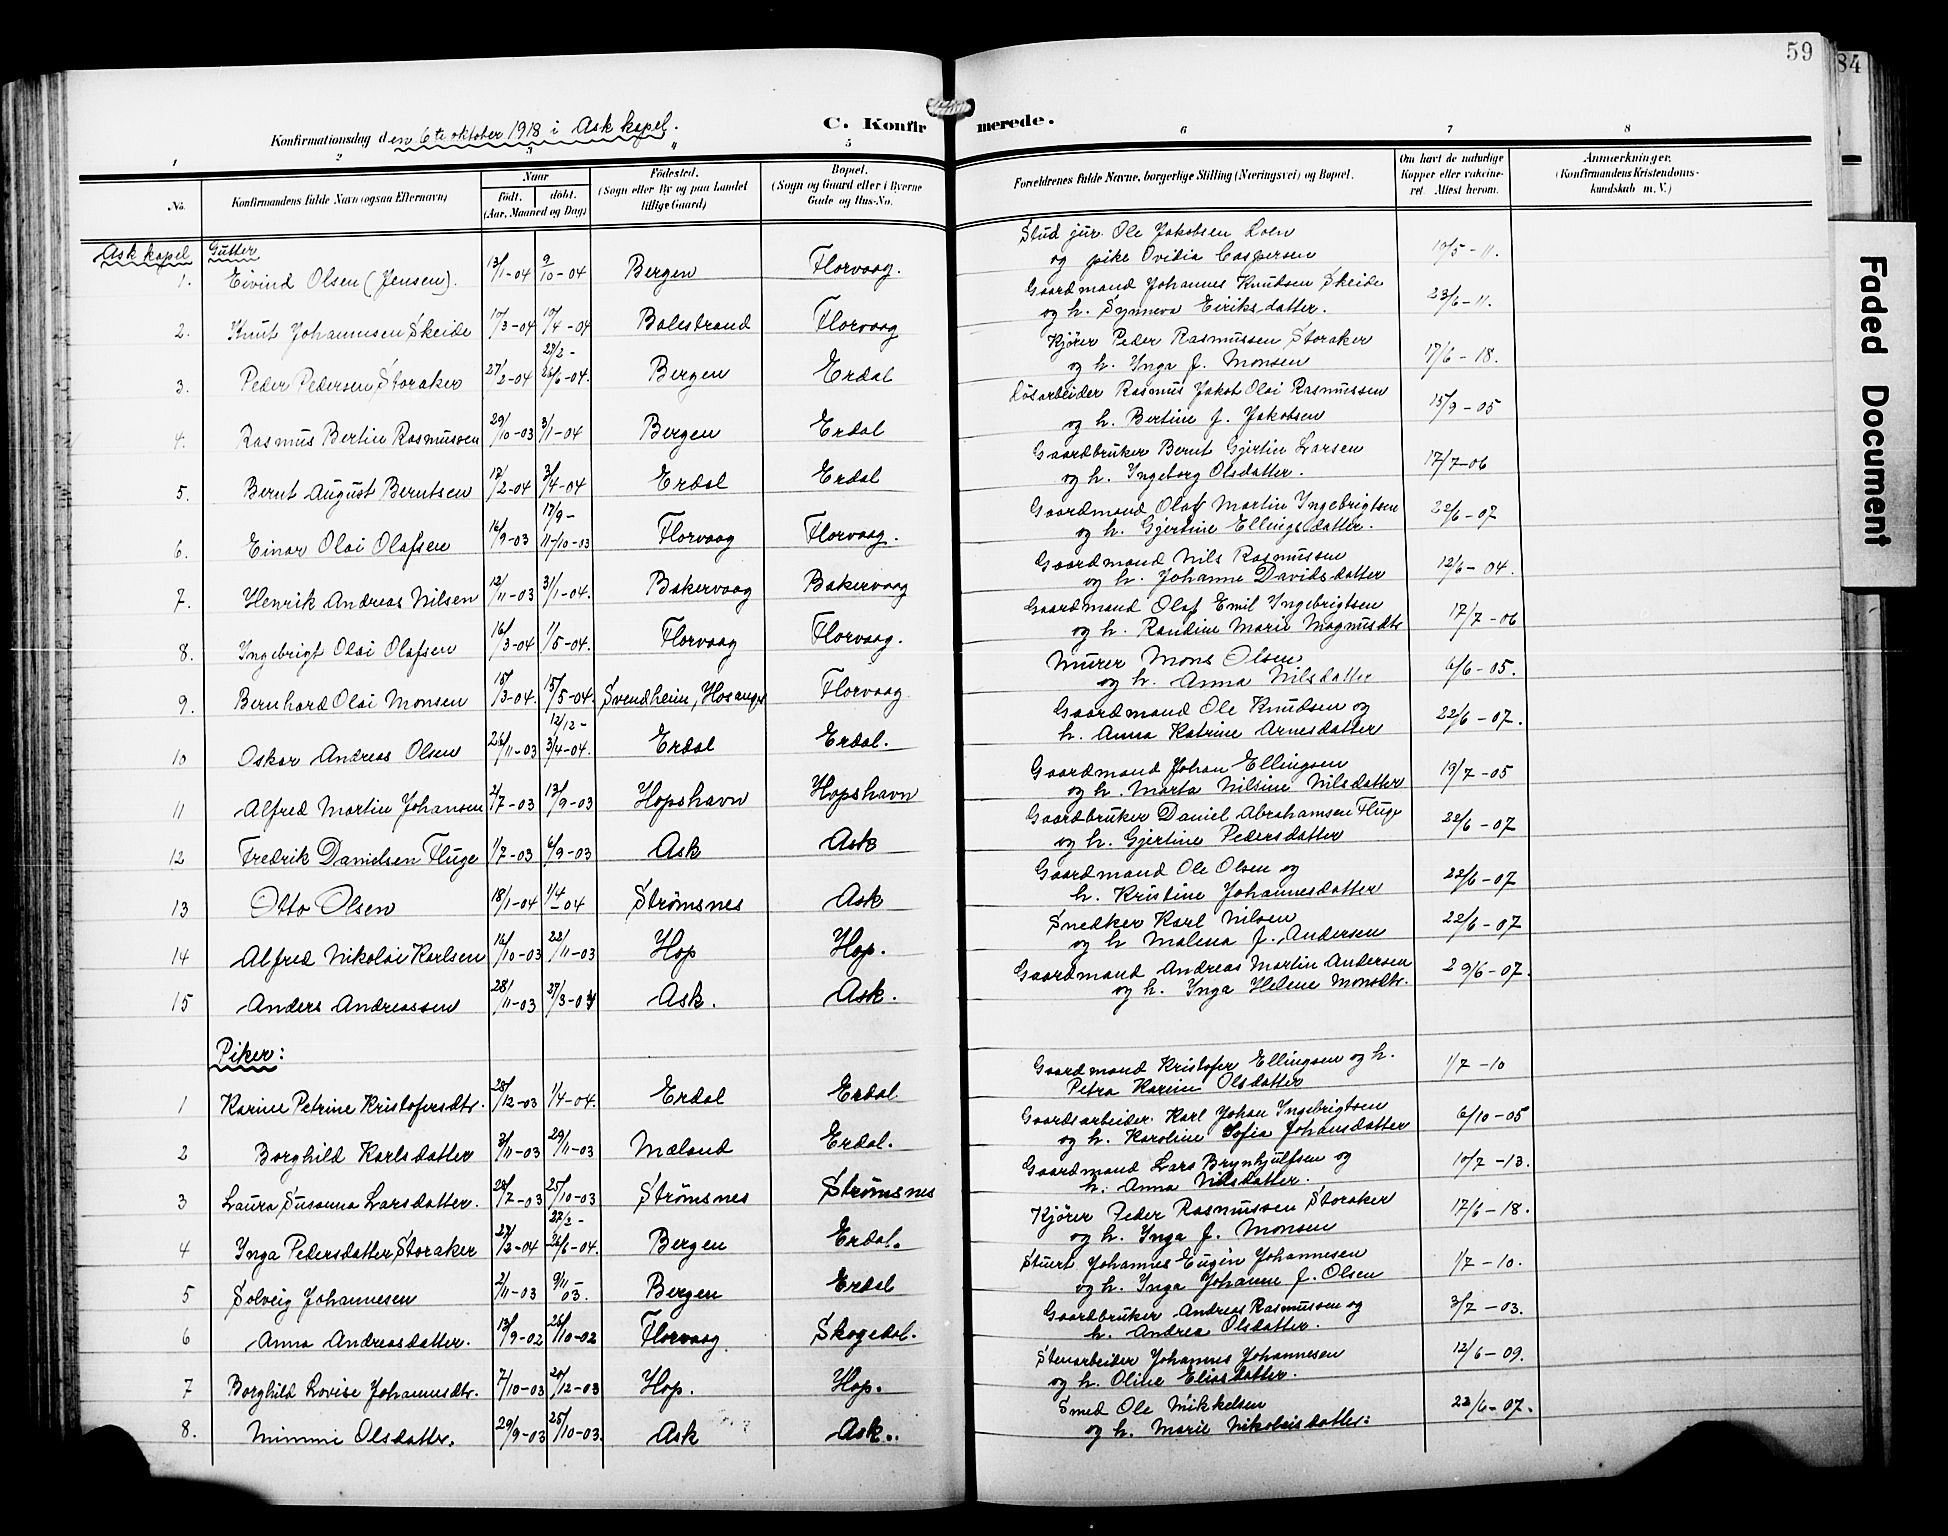 59
84
Faded Document
Konfirmationsdag den 6te oktober 1918 i Ask kapel.
C. Konfirmerede.
1 2 3 4 5 6 7 8
No.
Konfirmandens fulde Navn (ogsaa Efternavn)
Naar
født. døbt.
(Aar, Maaned og Dag)
Fødested.
(Sogn eller By og paa Landet
tillige Gaard)
Bopæl.
(Sogn og Gaard eller i Byerne
Gade og Hus-No.
Forældrenes fulde Navne, borgerlige Stilling (Næringsvei) og Bopæl.
Om havt de naturlige
Kopper eller vakcine-
ret. Attest herom.
Anmærkninger.
(Konfirmandens Kristendoms-
kundskab m. V.)
Ask kapel Gutter
1. Eivind Olsen (Jensen). 13/1-04 9/10-04 Bergen Florvaag. Stud jur. Ole Jakobsen Loen
og pike Ovidia Caspersen 10/5-11.
2. Knut Johannesen Skeide 10/3-04 10/4-04 Balestrand Florvaag Gaardmand Johannes Knudsen Skeide
og h. Synneva Eiriksdatter. 23/6-11.
3. Peder Pedersen Storaker 27/2-04 27/2- 26/6-04. Bergen Erdal Kjører Peder Rasmussen Storaker
og h. Inga f. Monsen 17/6-18.
4. Rasmus Bertin Rasmussen 29/10-03 3/1-04 Bergen Erdal Løsarbeider Rasmus Jakob Olai Rasmussen
og h. Bertine f. Jakobsen 15/9-05
5. Bernt August Berntsen 12/2-04 3/4-04 Erdal Erdal Gaardbruker Bernt Gjertin Larsen
og h. Ingeborg Olsdatter. 17/7-06
6. Einar Olai Olafsen 16/9-03 17/9- 11/10-03 Florvaag Florvaag. Gaardmand Olaf Martin Ingebrigtsen
og h. Gjertine Ellingsdatter. 22/6-07
7. Henrik Andreas Nilsen 12/11-03 31/1-04. Bakervaag Bakervaag Gaardmand Nils Rasmussen
og h. Johanne Davidsdatter 12/6-04.
8. Ingebrigt Olai Olafsen 16/3-04 1/5-04. Florvaag Florvaag. Gaardmand Olaf Emil Ingebrigtsen
og h. Randine Marie Magnusdtr 17/7-06
9. Bernhard Olai Monsen 15/3-04. 15/5-04. Svendheim, Hosanger Florvaag Murer Mons Olsen
og h. Anna Nilsdatter 6/6-05.
10 Oskar Andreas Olsen 26/11-03 12/12- 3/4-04. Erdal Erdal. Gaardmand Ole Knudsen og
h. Anna Katrine Arnesdatter 22/6-07.
11 Alfred Martin Johansen 21/7-03 13/9-03 Hopshavn Hopshavn Gaardmand Johan Ellingsen
og h. Marta Nilsine Nilsdatter 19/7-05
12 Fredrik Danielsen Fluge 1/7-03 6/9-03 Ask Ask Gaardbruker Daniel Abrahamsen Fluge
og h. Gjertine Pedersdatter 22/6-07
13 Otto Olsen 18/1-04 1/4-04 Strømsnes Ask Gaardmand Ole Olsen og
h. Kristine Johannesdatter 22/6-07
14 Alfred Nikolai Karlsen 16/10-03 22/11-03 Hop Hop. Snedker Karl Nilsen
og h Malena f. Andersen 22/6-07
15 Anders Andreassen 28/11-03 27/3-04 Ask. Ask. Gaardmand Andreas Martin Andersen
og h. Inga Helene Monsdtr. 29/6-07.
Piker:
1 Karine Petrine Kristofersdtr. 28/12-03 1/4-04. Erdal Erdal Gaardmand Kristofer Ellingsen og h.
Petra Karine Olsdatter 1/7-10
2 Borghild Karlsdatter 3/11-03 29/11-03 Mæland Erdal. Gaardsarbeider Karl Johan Ingebrigtsen
og h. Karoline Sofia Johansdatter 6/10-05
3 Laura Susanna Larsdatter. 28/7-03 25/10-03 Strømsnes Strømsnes Gaardmand Lars Brynhjulfsen og
h. Anna Nilsdatter. 10/7-13.
4 Inga Pedersdatter Storaker 27/2-04 27/2- 26/6-04. Bergen Erdal. Kjører Peder Rasmussen Storaker
og h. Inga f. Monsen 17/6-18.
5 Solveig Johannesen 2/11-03 9/11-03. Bergen Erdal Stuert Johannes Eugin Johannesen
og h. Inga Johanne f. Olsen 1/7-10.
6 Anna Andreasdatter. 13/9-02 26/10-02 Florvaag Skogedal. Gaardbruker Andreas Rasmussen og
h. Andrea Olsdatter. 3/7-03.
7 Borghild Lovise Johannesdtr. 7/10-03 20/12-03 Hop. Hop. Stenarbeider Johannes Johannesen
og h. Oline Eliasdatter. 12/6-09.
8. Mimmi Olsdatter. 29/9-03 25/10-03. Ask Ask. Smed Ole Mikkelsen
og h. Marie Nikolaisdatter. 22/6-07.